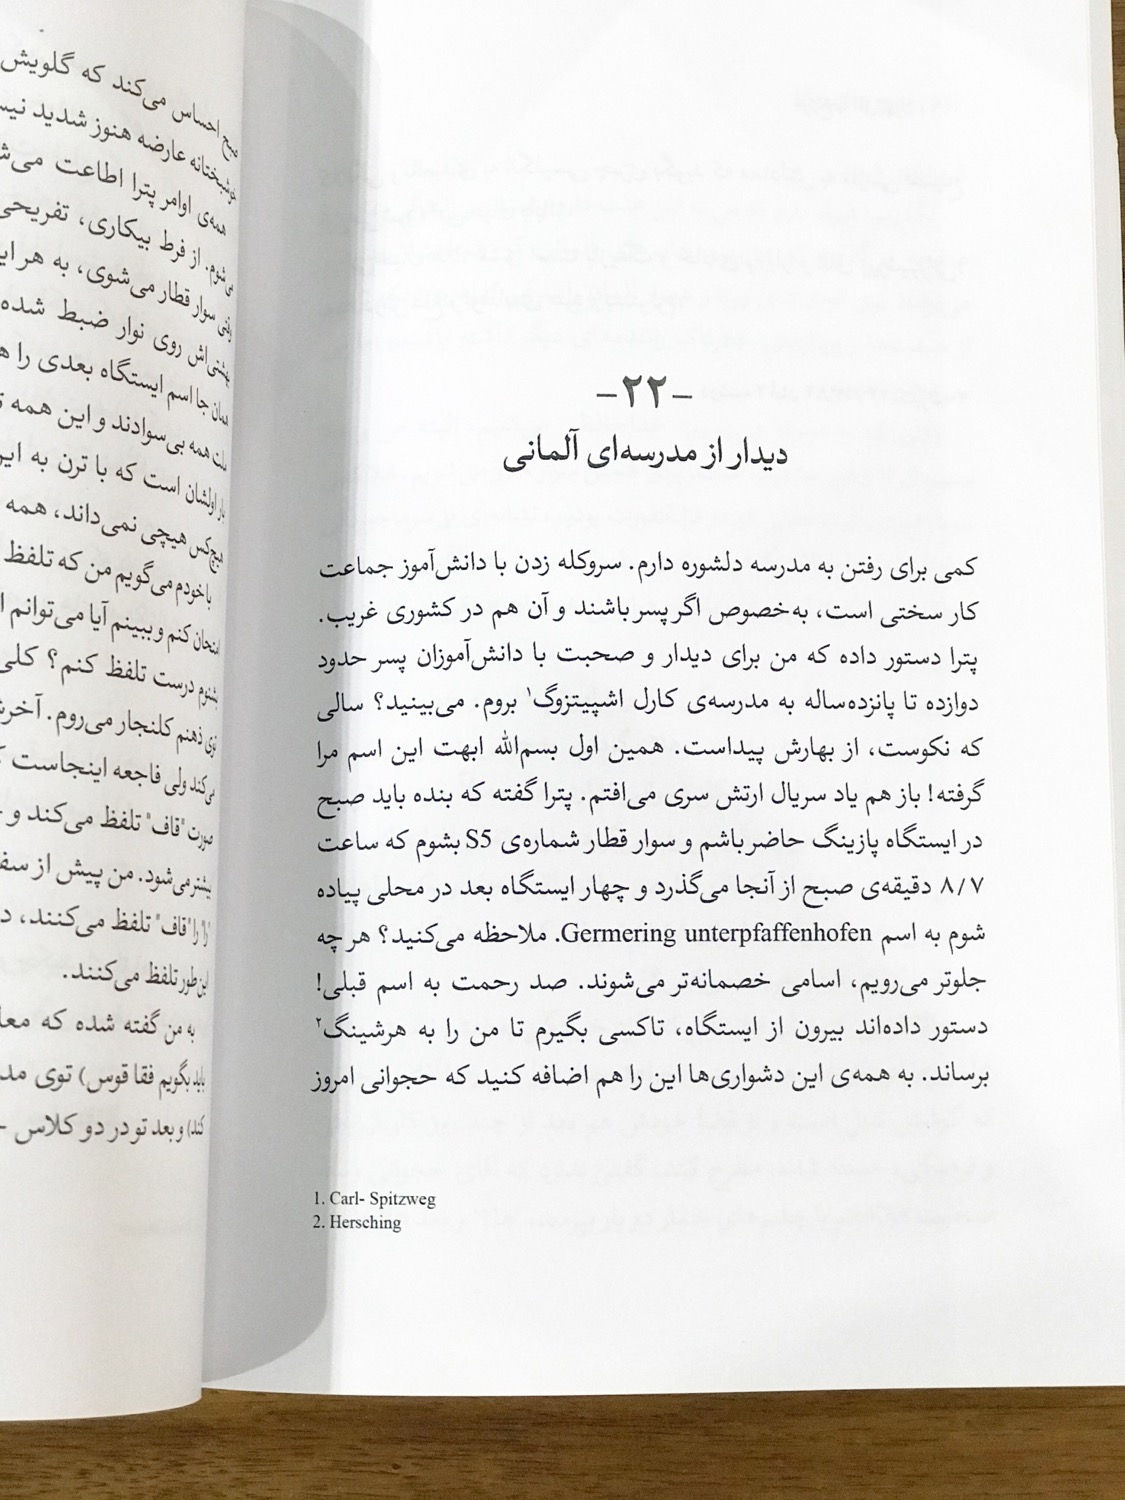 -۲۲-
دیدار از مدرسه‌ای آلمانی
کمی برای رفتن به مدرسه دلشوره دارم. سروکله زدن با دانش‌آموز جماعت
کار سختی است، به‌خصوص اگر پسر باشند و آن هم در کشوری غریب.
پترا دستور داده که من برای دیدار و صحبت با دانش‌آموزان پسر حدود
دوازده تا پانزده‌ساله به مدرسه‌ی کارل اشپیتزوگ۱ بروم. می‌بینید؟ سالی
که نکوست، از بهارش پیداست. همین اول بسم‌الله ابهت این اسم مرا
گرفته! باز هم یاد سریال ارتش سری می‌افتم. پترا گفته که بنده باید صبح
در ایستگاه پازینگ حاضر باشم و سوار قطار شماره‌ی S5 بشوم که ساعت
۸/۷ دقیقه‌ی صبح از آنجا می‌گذرد و چهار ایستگاه بعد در محلی پیاده
شوم به اسم Germering unterpfaffenhofen. ملاحظه می‌کنید؟ هر چه
جلوتر می‌رویم، اسامی خصمانه‌تر می‌شوند. صد رحمت به اسم قبلی!
دستور داده‌اند بیرون از ایستگاه، تاکسی بگیرم تا من را به هرشینگ۲
برساند. به همه‌ی این دشواری‌ها این را هم اضافه کنید که حجوانی امروز
1. Carl- Spitzweg
2. Hersching
صبح احساس می‌کند که گلویش
خوشبختانه عارضه هنوز شدید
همه‌ی اوامر پترا اطاعت
می‌شوم. از فرط بیکاری، تفریحی
وقتی سوار قطار می‌شوی، به هر
بهشتی‌اش روی نوار ضبط شده
همان جا اسم ایستگاه بعدی را
ملت همه بی‌سوادند و این همه
بار اولشان است که با ترن به
هیچ‌کس هیچی نمی‌داند، همه
با خودم می‌گویم من که تلفظ
امتحان کنم و ببینم آیا می‌توانم
بشنوم درست تلفظ کنم؟ کلی
توی ذهنم کلنجار می‌روم.
می‌کند ولی فاجعه اینجاست
صورت "قاف" تلفظ می‌کند و
بیشتر می‌شود. من پیش از
را "قاف" تلفظ می‌کنند،
این طور تلفظ می‌کنند.
به من گفته شده که
باید بگویم فقا قوس) توی
کند) و بعد تو در دو کلاس